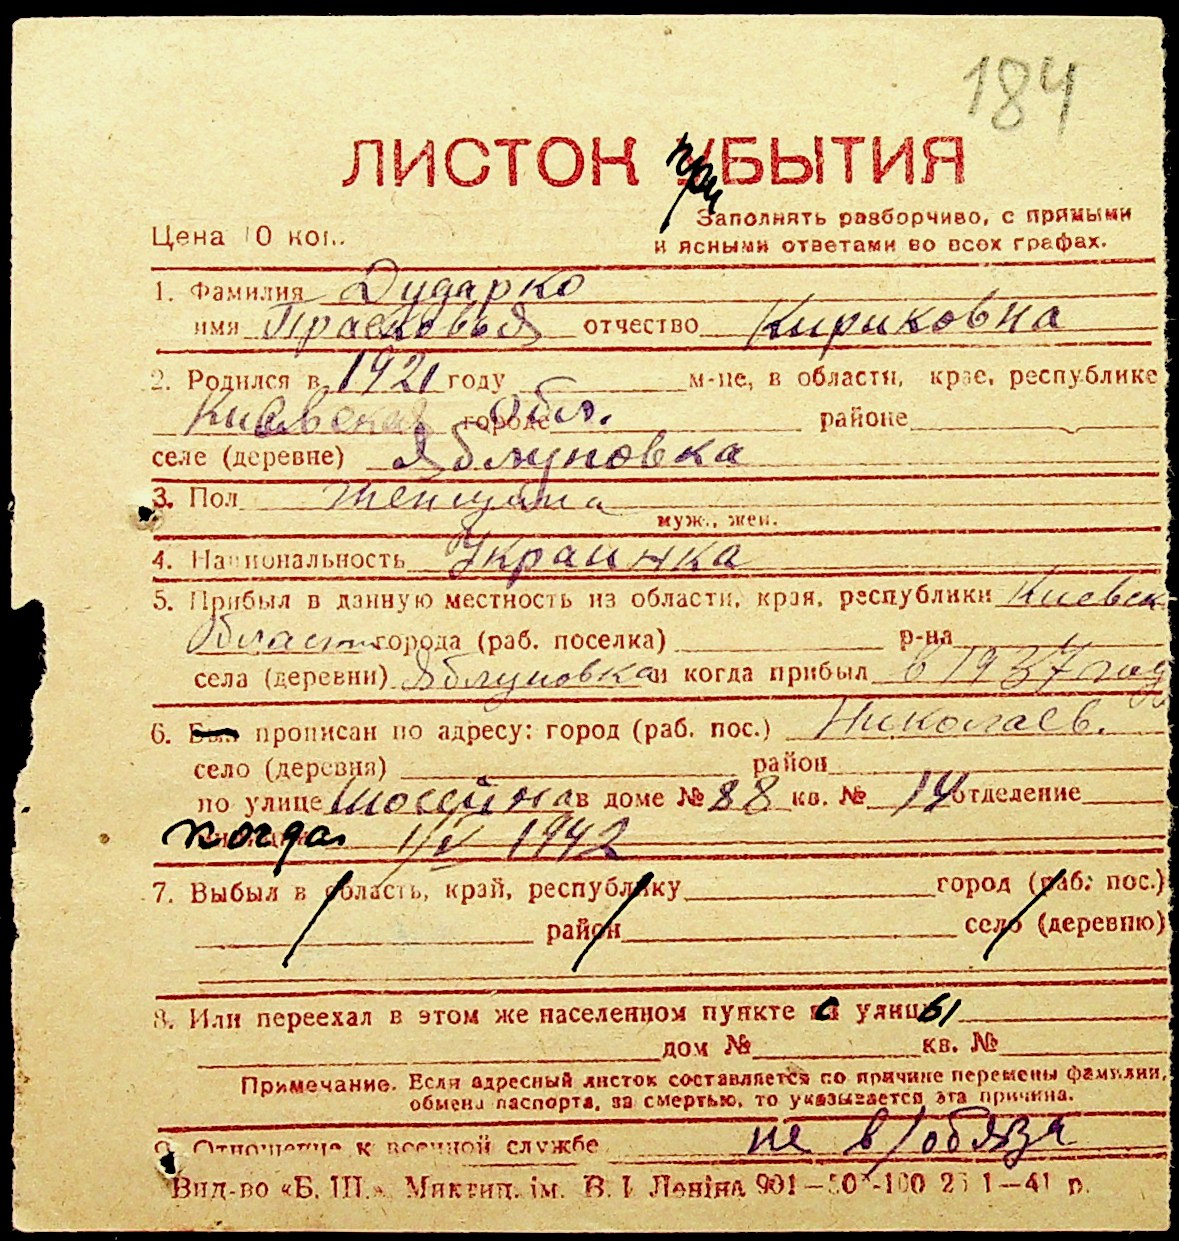 184
ЛИСТОК прибытия
Заполнять разборчиво, с прямыми
Цена 10 коп.
и ясными ответами во всех графах.
1. Фамилия Дударко
имя Прасковья отчество Кириковна
2. Родился в 1921 году м-це, в области, крае, республике
Киевская обл. городе районе
селе (деревне) Яблуновка
3. Пол женщина
муж., жен.
4. Национальность Украинка
5. Прибыл в данную местность из области, края, республики Киевск
Област города (раб. поселка) р-на
села (деревни) Яблуновка и когда прибыл в 1937 год
6. Был прописан по адресу: город (раб. пос.) Николаев.
село (деревня) район
по улице Шосейная в доме № 88 кв. № 14 отделение
когда 1/V 1942
7. Выбыл в область, край, республику город (раб. пос.)
район село (деревню)
8. Или переехал в этом же населенном пункте с улицы
дом № кв. №
Примечание. Если адресный листок составляется по причине перемены фамилии,
обмена паспорта, за смертью, то указывается эта причина.
9. Отношение к военной службе не в/обяза
Вид-во «Б. Ш.». Миктип. ім. В. І. Леніна 901—50 -100 1—41 р.